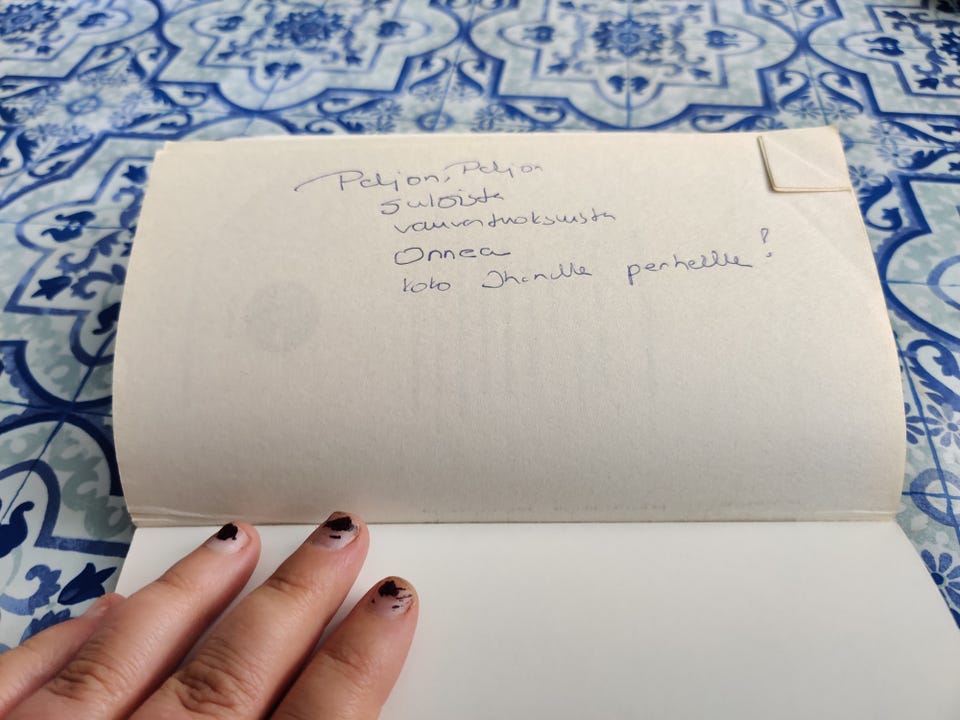 Paljon, Paljon
suloista
vauvantuoksuista
Onnea
koko Ihanalle perheelle!